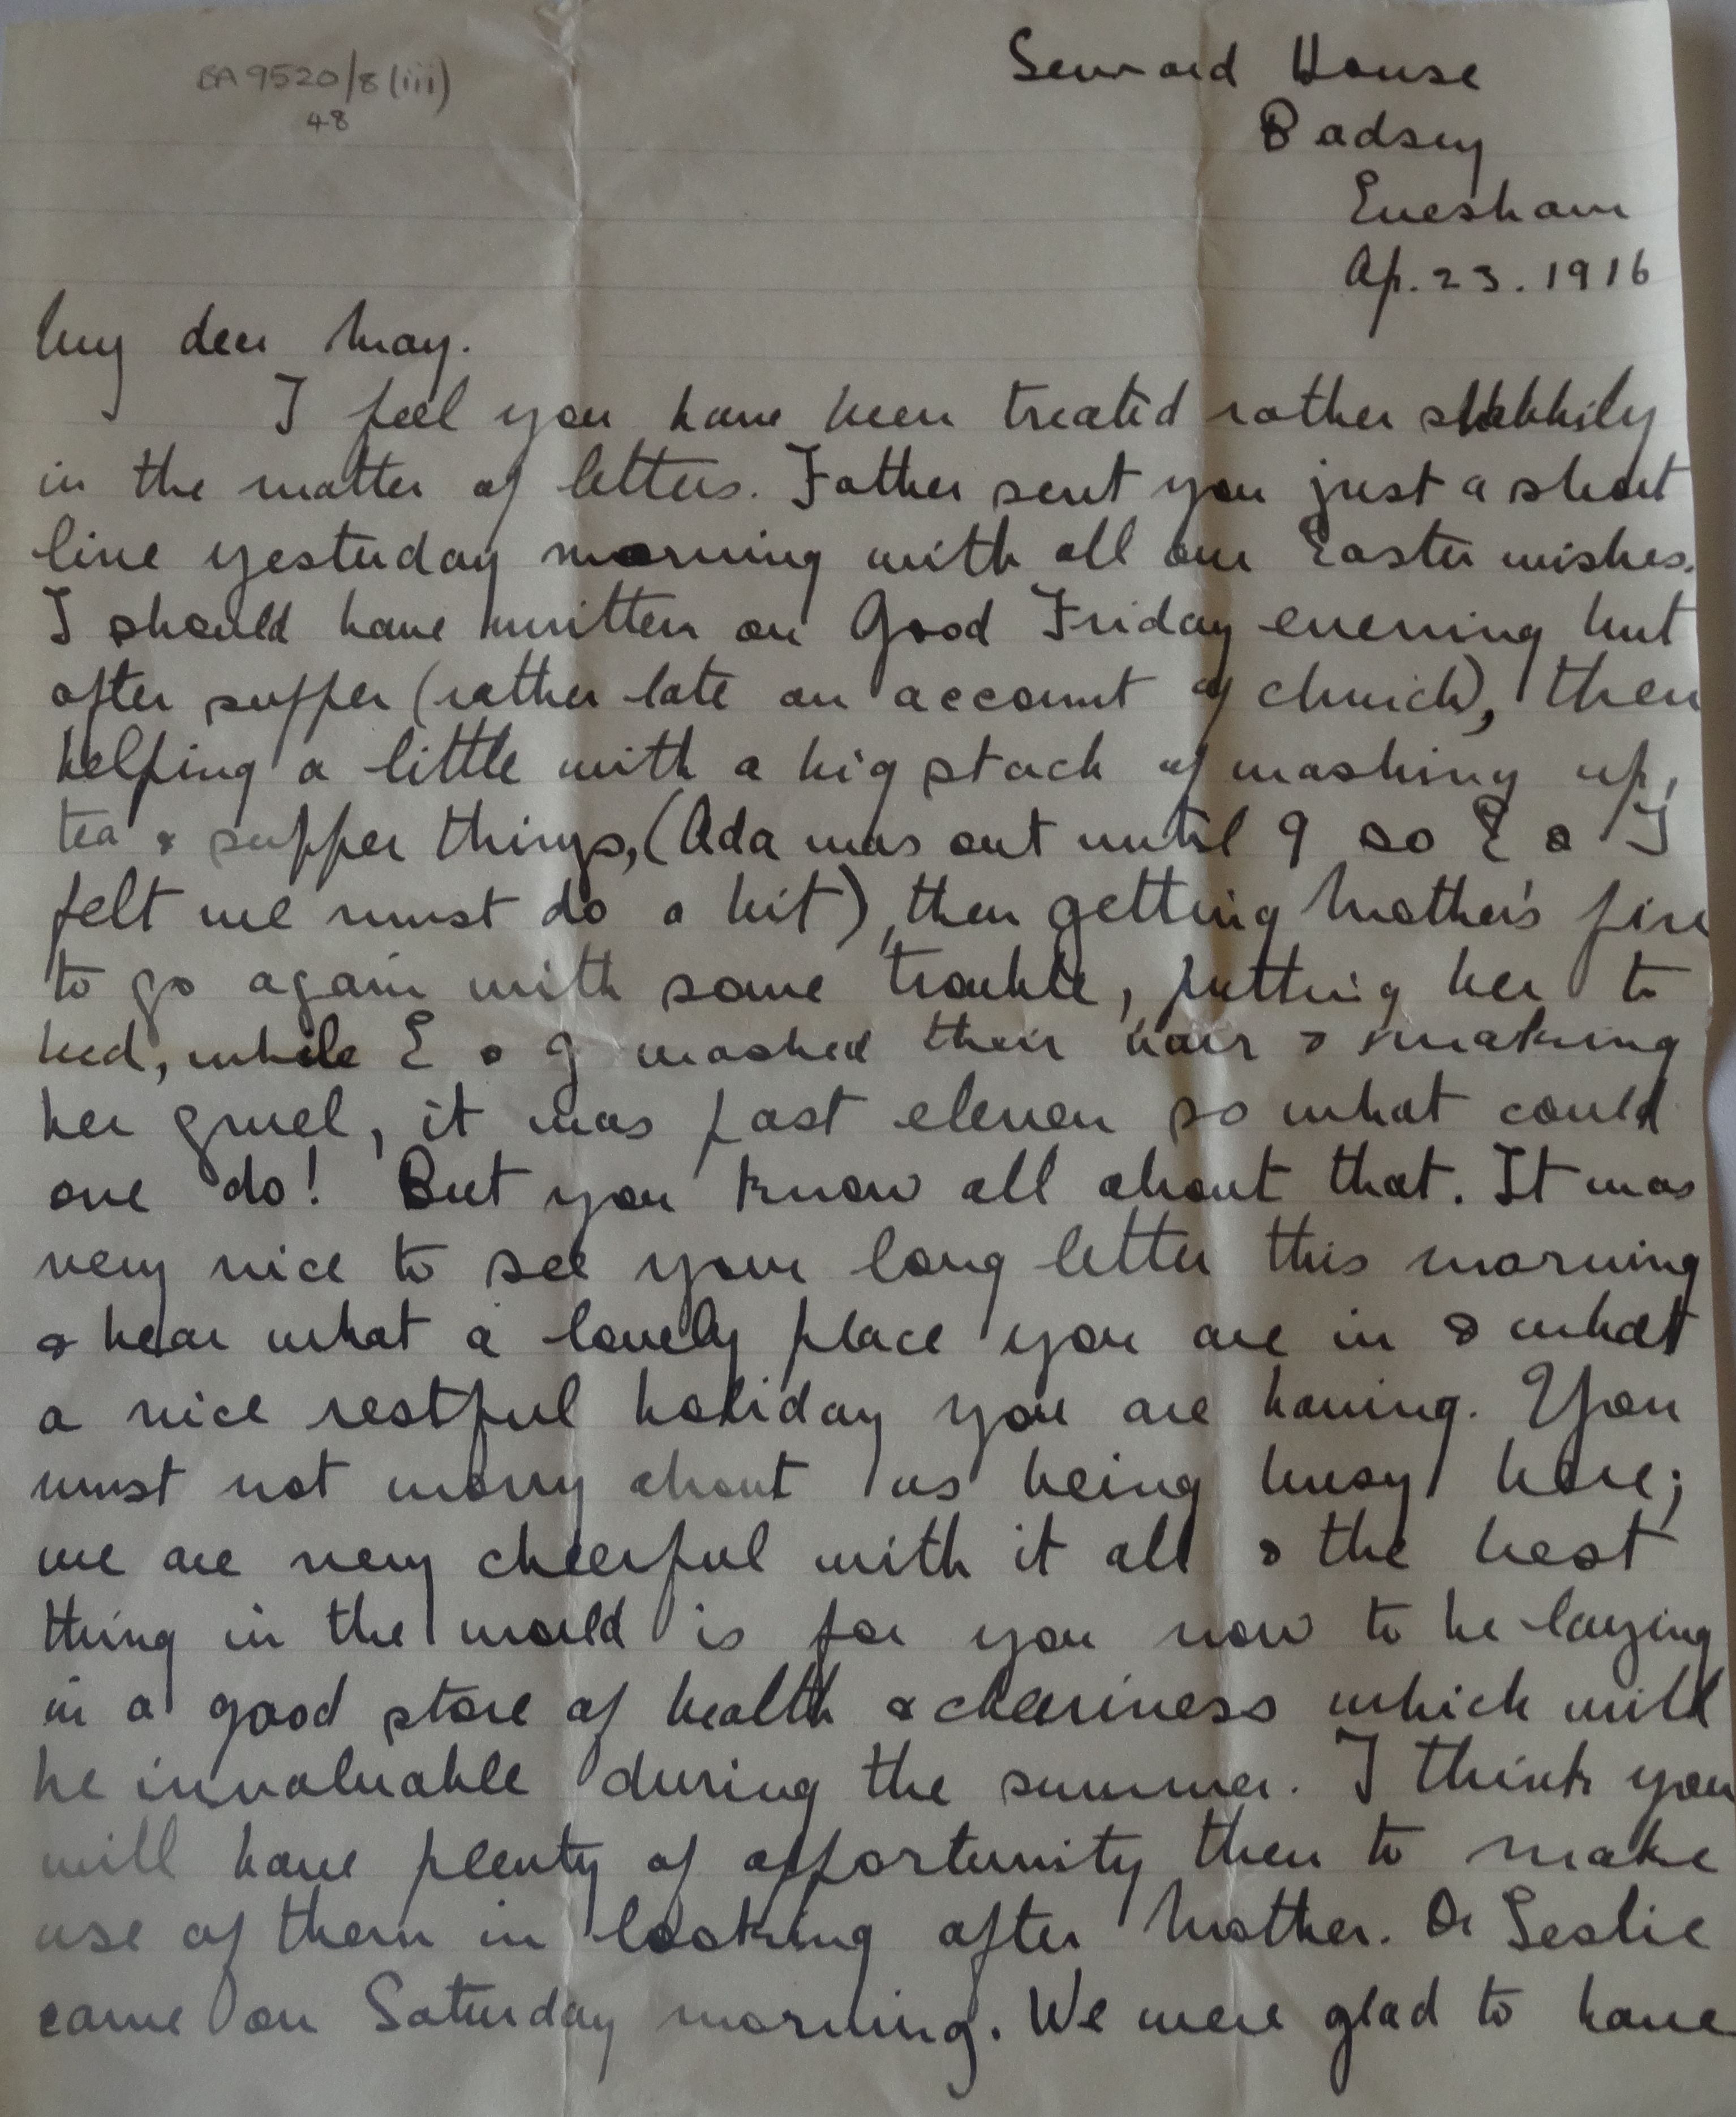 BA 9520/8(iii)
48
Seward House
Badsey
Evesham
Ap. 23. 1916
My dear May.
I feel you have been treated rather shabbily
in the matter of letters. Father sent you just a short
line yesterday morning with all our Easter wishes.
I should have written on Good Friday evening but
after supper (rather late on account of church), then
helping a little with a big stack of washing up,
tea & supper things, (Ada was out until 9 so E & I
felt we must do a bit), then getting Mother's fire
to go again with some trouble, putting her to
bed, while E & J washed their hair & making
her gruel, it was past eleven so what could
one do! But you know all about that. It was
very nice to see your long letter this morning
& hear what a lovely place you are in & what
a nice restful holiday you are having. You
must not worry about us being busy here;
we are very cheerful with it all & the best
thing in the world is for you now to be laying
in a good store of health & cheeriness which will
be invaluable during the summer. I think you
will have plenty of opportunity then to make
use of them in looking after Mother. Dr Leslie
came on Saturday morning. We were glad to have